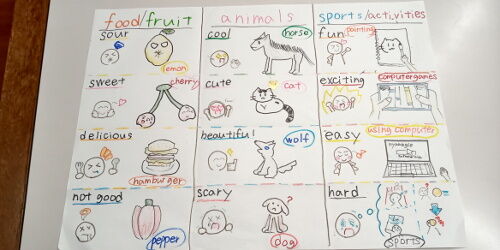 food/fruit
sour
lemon
sweet
cherry
delicious
hamburger
not good
pepper
animals
cool
horse
cute
cat
beautiful
wolf
scary
dog
sports/activities
fun
painting
exciting
computergames
easy
using computer
hard
sports